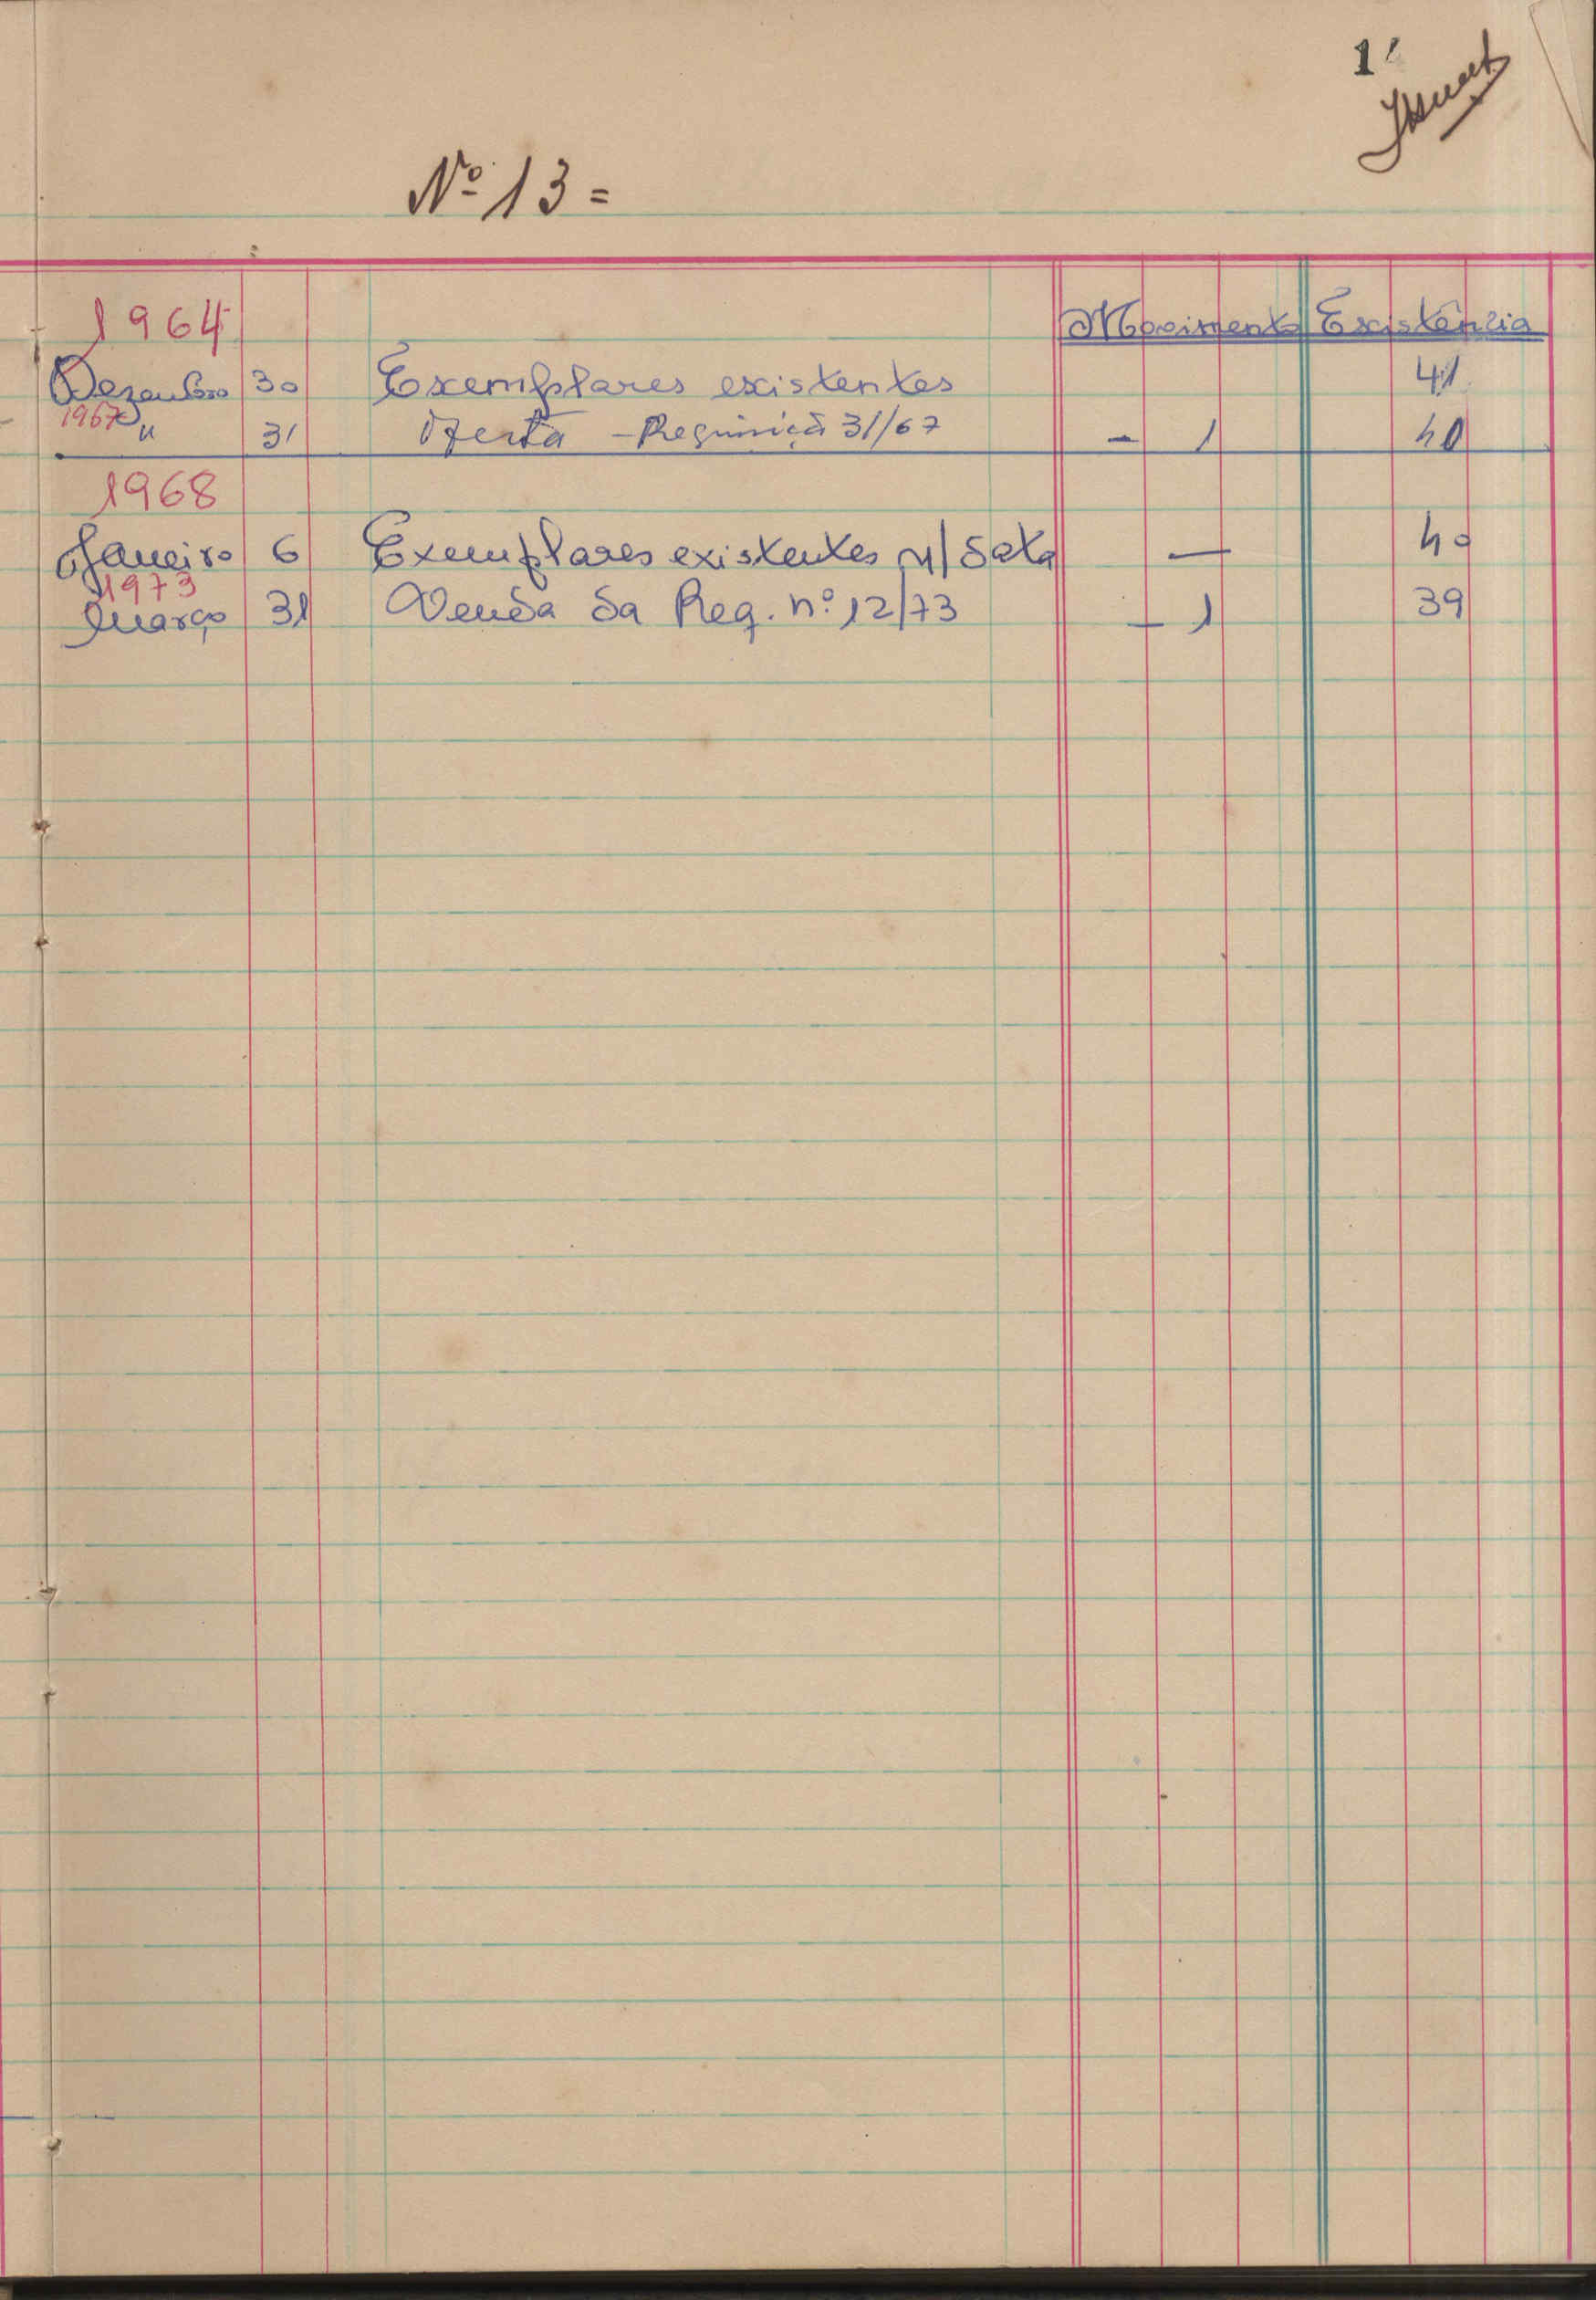 1
Nº 13 =
1964 Movimento Existência
Dezembro 30 Exemplares existentes 41
1967
" 31 Oferta - Requisição 31/67 - 1 40
1968
Janeiro 6 Exemplares existentes n/data — 40
1973
Março 31 Venda da Req. nº 12/73 - 1 39